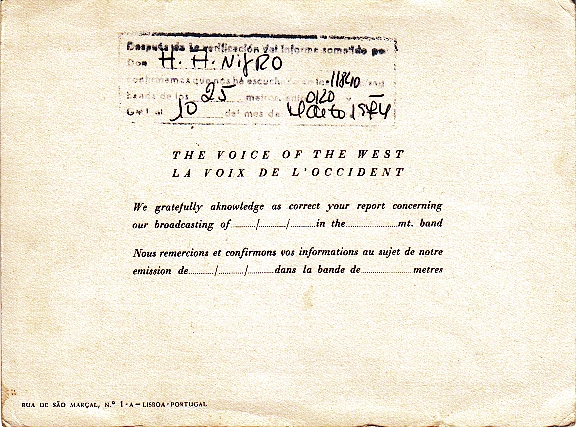 Después de la verificación del informe sometido por
Don H. H. Nigro
confirmamos que nos ha escuchado en la 11840
banda de los 25 metros, 0120
G.m.t. al 10 del mes de 1974
THE VOICE OF THE WEST
LA VOIX DE L'OCCIDENT
We gratefully aknowledge as correct your report concerning
our broadcasting of ........./........./......... in the .................. mt. band
Nous remercions et confirmons vos informations au sujet de notre
emission de ........./........./......... dans la bande de .................. metres
RUA DE SÃO MARÇAL, N.º 1-A — LISBOA-PORTUGAL